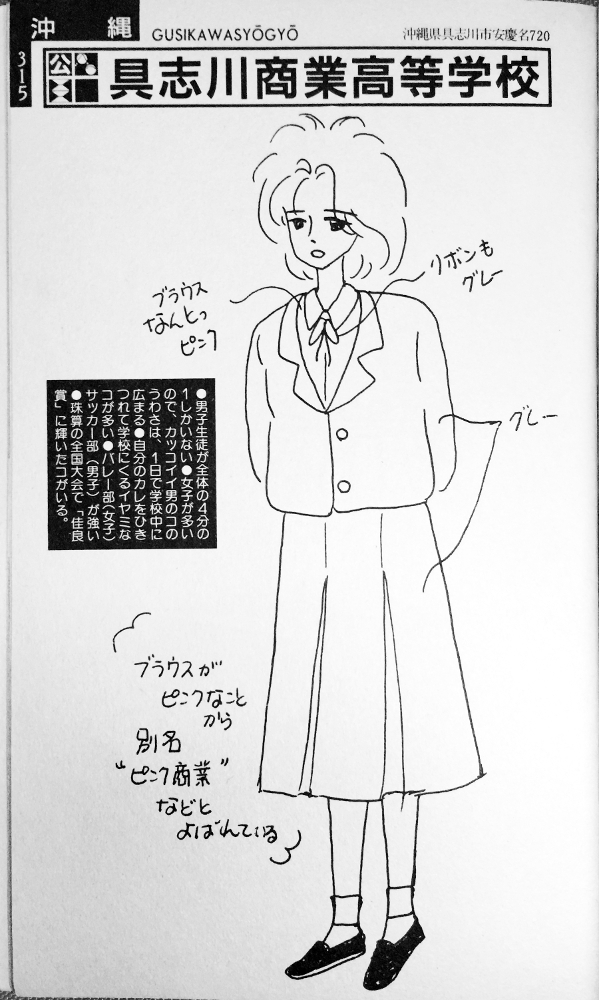 沖縄
GUSIKAWASYŌGYŌ
沖縄県具志川市安慶名720
315
公
具志川商業高等学校
リボンも
グレー
ブラウス
なんとっ
ピンク
グレー
●男子生徒が全体の4分の
1しかいない●女子が多い
ので、カッコイイ男のコの
うわさは、1日で学校中に
広まる●自分のカレをひき
つれて学校にくるイヤミな
コが多い●バレー部(女子)
サッカー部(男子)が強い
●珠算の全国大会で「佳良
賞」に輝いたコがいる。
ブラウスが
ピンクなこと
から
別名
“ピンク商業”
などと
よばれている